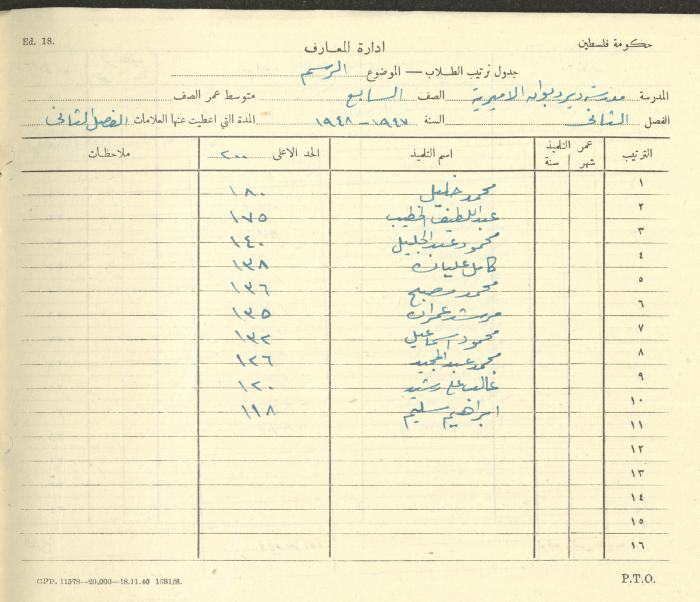 Ed. 18.
حكومة فلسطين
ادارة المعارف
جدول ترتيب الطلاب — الموضوع الرسم
المدرسة مدرسة دير ديوان الاميرية الصف السابع متوسط عمر الصف
الفصل الثاني السنة ١٩٤٧ - ١٩٤٨ المدة التي اعطيت عنها العلامات الفصل الثاني
الترتيب عمر التلميذ شهر سنة اسم التلميذ الحد الاعلى ٢٠٠ ملاحظات
١ محمد خليل ١٨٠
٢ عبد اللطيف الخطيب ١٧٥
٣ محمود عبد الجليل ١٤٠
٤ كامل عليان ١٣٨
٥ محمد مصبح ١٣٦
٦ مرشد عمران ١٣٥
٧ محمود اسماعيل ١٣٢
٨ محمد عبد المجيد ١٢٦
٩ غالب علي رشيد ١٢٠
١٠ ابراهيم سليم ١١٨
١١
١٢
١٣
١٤
١٥
١٦
GPP. 11578—20,000—18.11.40 1531/S.
P.T.O.